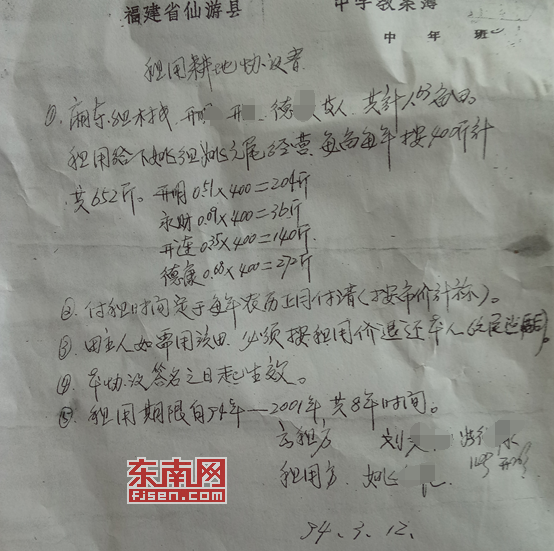 福建省仙游县 中学教案簿
中 年 班
租用耕地协议书
①. 庙东组木栈、开明 开 德 等人. 共计1.63亩田。
租用给下姚组姚元尾经营. 每亩每年按400斤计
共652斤。开明0.51×400=204斤
永财0.09×400=36斤
开连0.35×400=140斤
德象0.68×400=272斤
②. 付租时间定于每年农历正月付清(按市价计标)。
③. 田主人如要用该田. 必须按租用价退还本人
④. 本协议签名之日起生效。
⑤. 租用期限自94年—2001年共8年时间。
出租方 刘 水
租用方. 姚
94、3、12、
东南网
fjsen.com